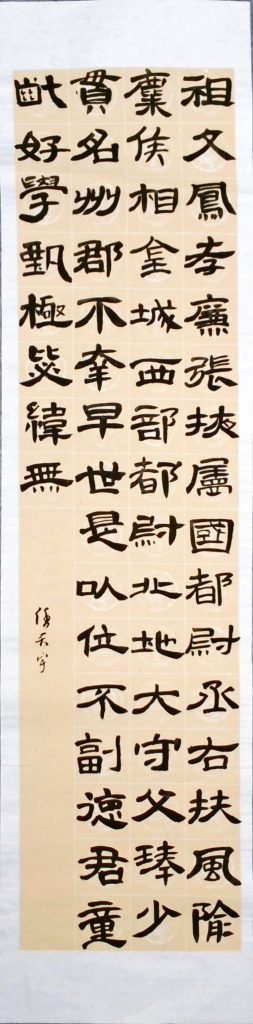 祖父鳳孝廉張掖屬國都尉丞右扶風隃
麋侯相金城西部都尉北地大守父琫少
貫名州郡不幸早世是以位不副德君童
齔好學甄極毖緯無